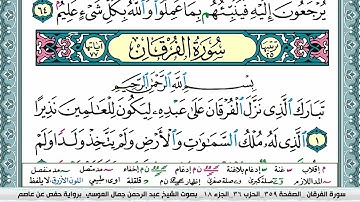 يُرْجَعُونَ إِلَيْهِ فَيُنَبِّئُهُم بِمَا عَمِلُوا۟ وَٱللَّهُ بِكُلِّ شَىْءٍ عَلِيمٌۢ ٦٤
سُورَةُ الفُرْقَانِ
بِسْمِ ٱللَّهِ ٱلرَّحْمَٰنِ ٱلرَّحِيمِ
تَبَارَكَ ٱلَّذِى نَزَّلَ ٱلْفُرْقَانَ عَلَىٰ عَبْدِهِۦ لِيَكُونَ لِلْعَٰلَمِينَ نَذِيرًا
١ ٱلَّذِى لَهُۥ مُلْكُ ٱلسَّمَٰوَٰتِ وَٱلْأَرْضِ وَلَمْ يَتَّخِذْ وَلَدًا وَلَمْ
سورة الفرقان الصفحة ٣٥٩ الحزب ٣٦ الجزء ١٨ بصوت الشيخ عبد الرحمن جمال العوسي. برواية حفص عن عاصم